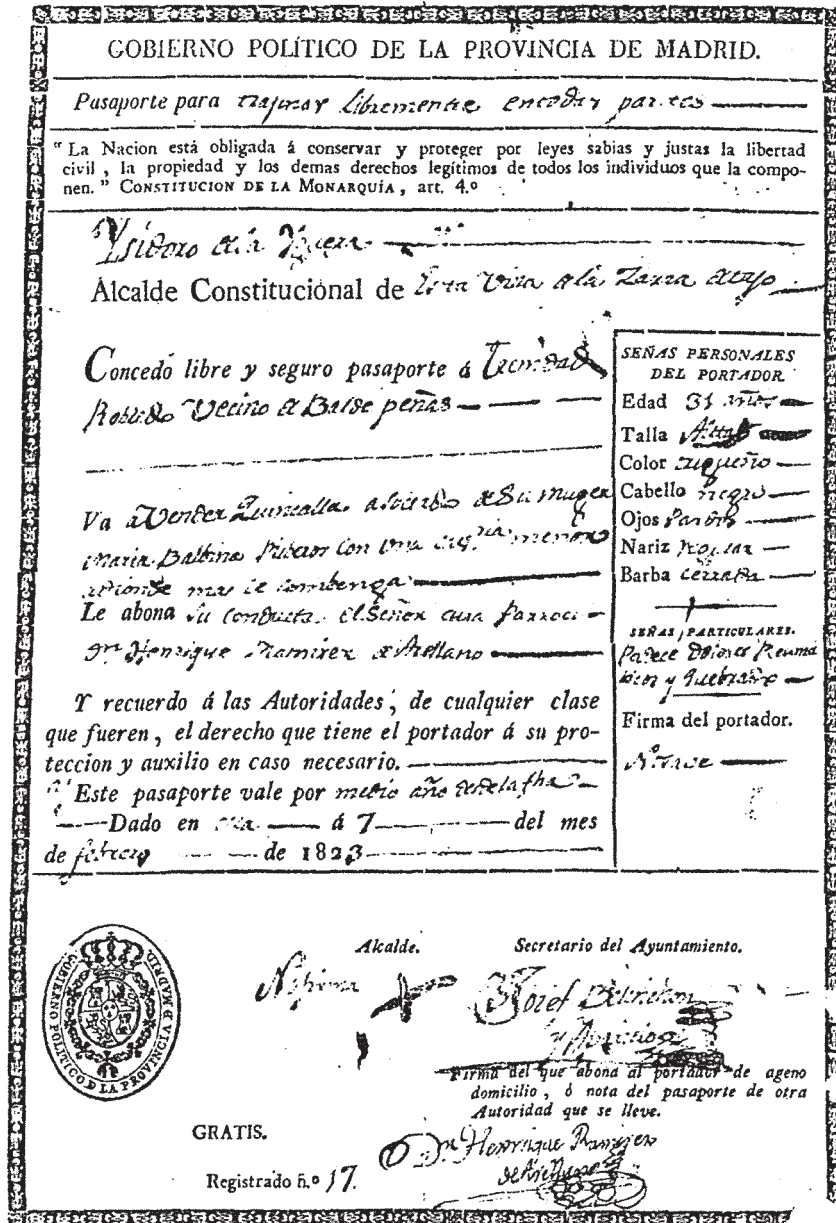 GOBIERNO POLÍTICO DE LA PROVINCIA DE MADRID.
Pasaporte para trajinar Libremente en todas partes
"La Nacion está obligada á conservar y proteger por leyes sabias y justas la libertad
civil, la propiedad y los demas derechos legítimos de todos los individuos que la compo-
nen." CONSTITUCION DE LA MONARQUÍA, art. 4.º
Ysidoro de la
Alcalde Constitucional de esta Villa de la
Concedo libre y seguro pasaporte á Trinidad
Robledo Vecino de Baldepeñas
Va á Vender Quincalla asociado de Su muger
Maria Balbina con una menor
adonde mas le combenga
Le abona Su conducta el Señor cura Parroco
Dn. Henrique Ramirez de Arellano
Y recuerdo á las Autoridades, de cualquier clase
que fueren, el derecho que tiene el portador á su pro-
teccion y auxilio en caso necesario.
Este pasaporte vale por medio año desde la fha
Dado en á 7 del mes
de febrero de 1823
SEÑAS PERSONALES
DEL PORTADOR
Edad 31 años
Talla Alta
Color trigueño
Cabello negro
Ojos Pardos
Nariz
Barba cerrada
SEÑAS PARTICULARES.
Padece Dolores Reuma
ticos y Quebrado
Firma del portador.
No save
Alcalde.
Secretario del Ayuntamiento.
Nofirma
Josef
y Aparicio
Firma del que abona al portador de ageno
domicilio, ó nota del pasaporte de otra
Autoridad que se lleve.
Dn Henrrique Ramirez
de Arellano
GOBIERNO POLITICO D LA PROVINCIA D MADRID.
GRATIS.
Registrado n.º 17.